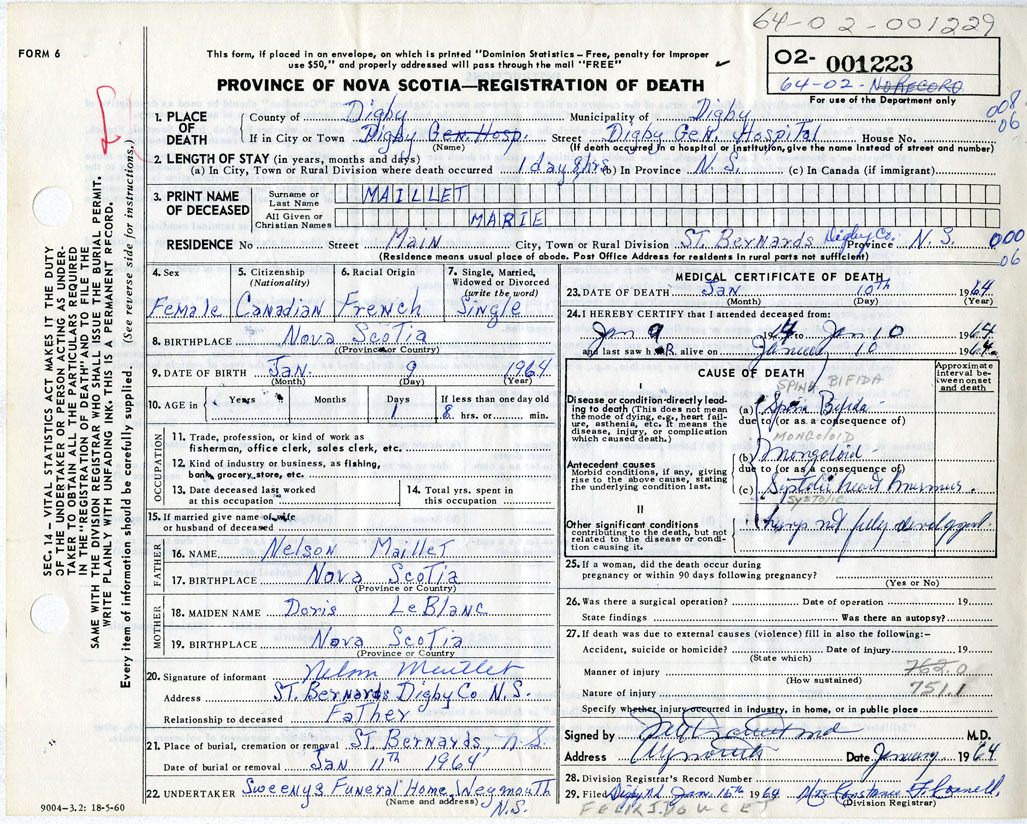 64-02-001229
FORM 6
This form, if placed in an envelope, on which is printed "Dominion Statistics – Free, penalty for improper
use $50," and properly addressed will pass through the mail "FREE"
02- 001223
64-02- NO RECORD
For use of the Department only
PROVINCE OF NOVA SCOTIA—REGISTRATION OF DEATH
008.
06
1. PLACE OF DEATH
County of Digby Municipality of Digby
If in City or Town Digby Gen. Hosp. Street Digby Gen. Hospital House No.
(Name) (If death occurred in a hospital or institution, give the name instead of street and number)
2. LENGTH OF STAY (in years, months and days)
(a) In City, Town or Rural Division where death occurred 1 day 8 hrs (b) In Province N.S. (c) In Canada (if immigrant)
3. PRINT NAME OF DECEASED
Surname or Last Name MAILLET
All Given or Christian Names MARIE
RESIDENCE No. Street Main City, Town or Rural Division ST. Bernards Digby Co. Province N.S. 000
06
(Residence means usual place of abode. Post Office Address for residents in rural parts not sufficient)
4. Sex Female
5. Citizenship (Nationality) Canadian
6. Racial Origin French
7. Single, Married, Widowed or Divorced (write the word) Single
8. BIRTHPLACE Nova Scotia
(Province or Country)
9. DATE OF BIRTH Jan. 9 1964
(Month) (Day) (Year)
10. AGE in Years Months Days 1 If less than one day old 8 hrs. or min.
OCCUPATION
11. Trade, profession, or kind of work as
fisherman, office clerk, sales clerk, etc.
12. Kind of industry or business, as fishing,
bank, grocery store, etc.
13. Date deceased last worked
at this occupation
14. Total yrs. spent in
this occupation
15. If married give name of wife
or husband of deceased
FATHER
16. NAME Nelson Maillet
17. BIRTHPLACE Nova Scotia
(Province or Country)
MOTHER
18. MAIDEN NAME Doris LeBlanc
19. BIRTHPLACE Nova Scotia
(Province or Country)
20. Signature of informant Nelson Maillet
Address ST. Bernards Digby Co N.S.
Relationship to deceased Father
21. Place of burial, cremation or removal ST. Bernards, N.S
Date of burial or removal Jan 11th 1964
22. UNDERTAKER Sweenys Funeral Home, Weymouth
(Name and address) N.S.
9004-3.2: 18-5-60
MEDICAL CERTIFICATE OF DEATH
23. DATE OF DEATH Jan 10th 1964
(Month) (Day) (Year)
24. I HEREBY CERTIFY that I attended deceased from:
Jan 9 Jan 10 1964
and last saw h alive on January 10 1964
CAUSE OF DEATH
Approximate interval between onset and death
SPINA BIFIDA
I
Disease or condition directly leading to death (This does not mean the mode of dying, e.g., heart failure, asthenia, etc. It means the disease, injury, or complication which caused death.)
(a) Spina Bifida
due to (or as a consequence of)
MONGOLOID
Antecedent causes
Morbid conditions, if any, giving rise to the above cause, stating the underlying condition last.
(b) Mongoloid
due to (or as a consequence of)
(c) Systolic heart murmur.
SYSTOLIC
II
Other significant conditions contributing to the death, but not related to the disease or condition causing it.
Lungs not fully developed.
25. If a woman, did the death occur during
pregnancy or within 90 days following pregnancy?
(Yes or No)
26. Was there a surgical operation? Date of operation 19
State findings Was there an autopsy?
27. If death was due to external causes (violence) fill in also the following:–
Accident, suicide or homicide? Date of injury 19
(State which)
Manner of injury 762.0
(How sustained)
751.1
Nature of injury
Specify whether injury occurred in industry, in home, or in public place
Signed by M.D.
Address Weymouth Date January 1964
28. Division Registrar's Record Number
29. Filed Digby Jan. 15th 1964 Mrs Constance F. Connell
(Division Registrar)
FELIX J. DOUCET
SEC. 14 – VITAL STATISTICS ACT MAKES IT THE DUTY
OF THE UNDERTAKER OR PERSON ACTING AS UNDER-
TAKER TO OBTAIN ALL THE PARTICULARS REQUIRED
IN THE "REGISTRATION OF DEATH" AND TO FILE THE
SAME WITH THE DIVISION REGISTRAR WHO SHALL ISSUE THE BURIAL PERMIT.
WRITE PLAINLY WITH UNFADING INK. THIS IS A PERMANENT RECORD.
Every item of information should be carefully supplied. (See reverse side for instructions.)